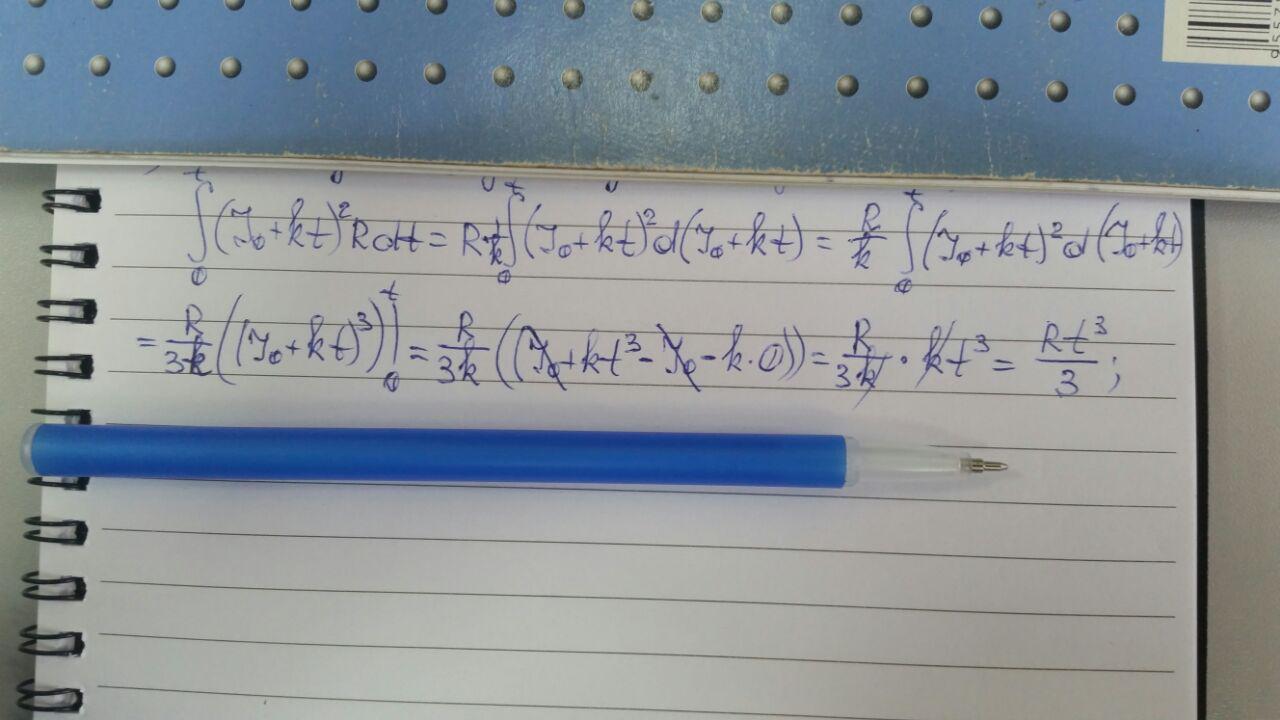 ∫₀ᵗ (J₀+kt)² R dt = R 1/k ∫₀ᵗ (J₀+kt)² d(J₀+kt) = R/k ∫₀ᵗ (J₀+kt)² d(J₀+kt)
= R/3k ((J₀+kt)³)|₀ᵗ = R/3k ((J₀+kt³-J₀-k·0)) = R/3k · kt³ = Rt³/3;